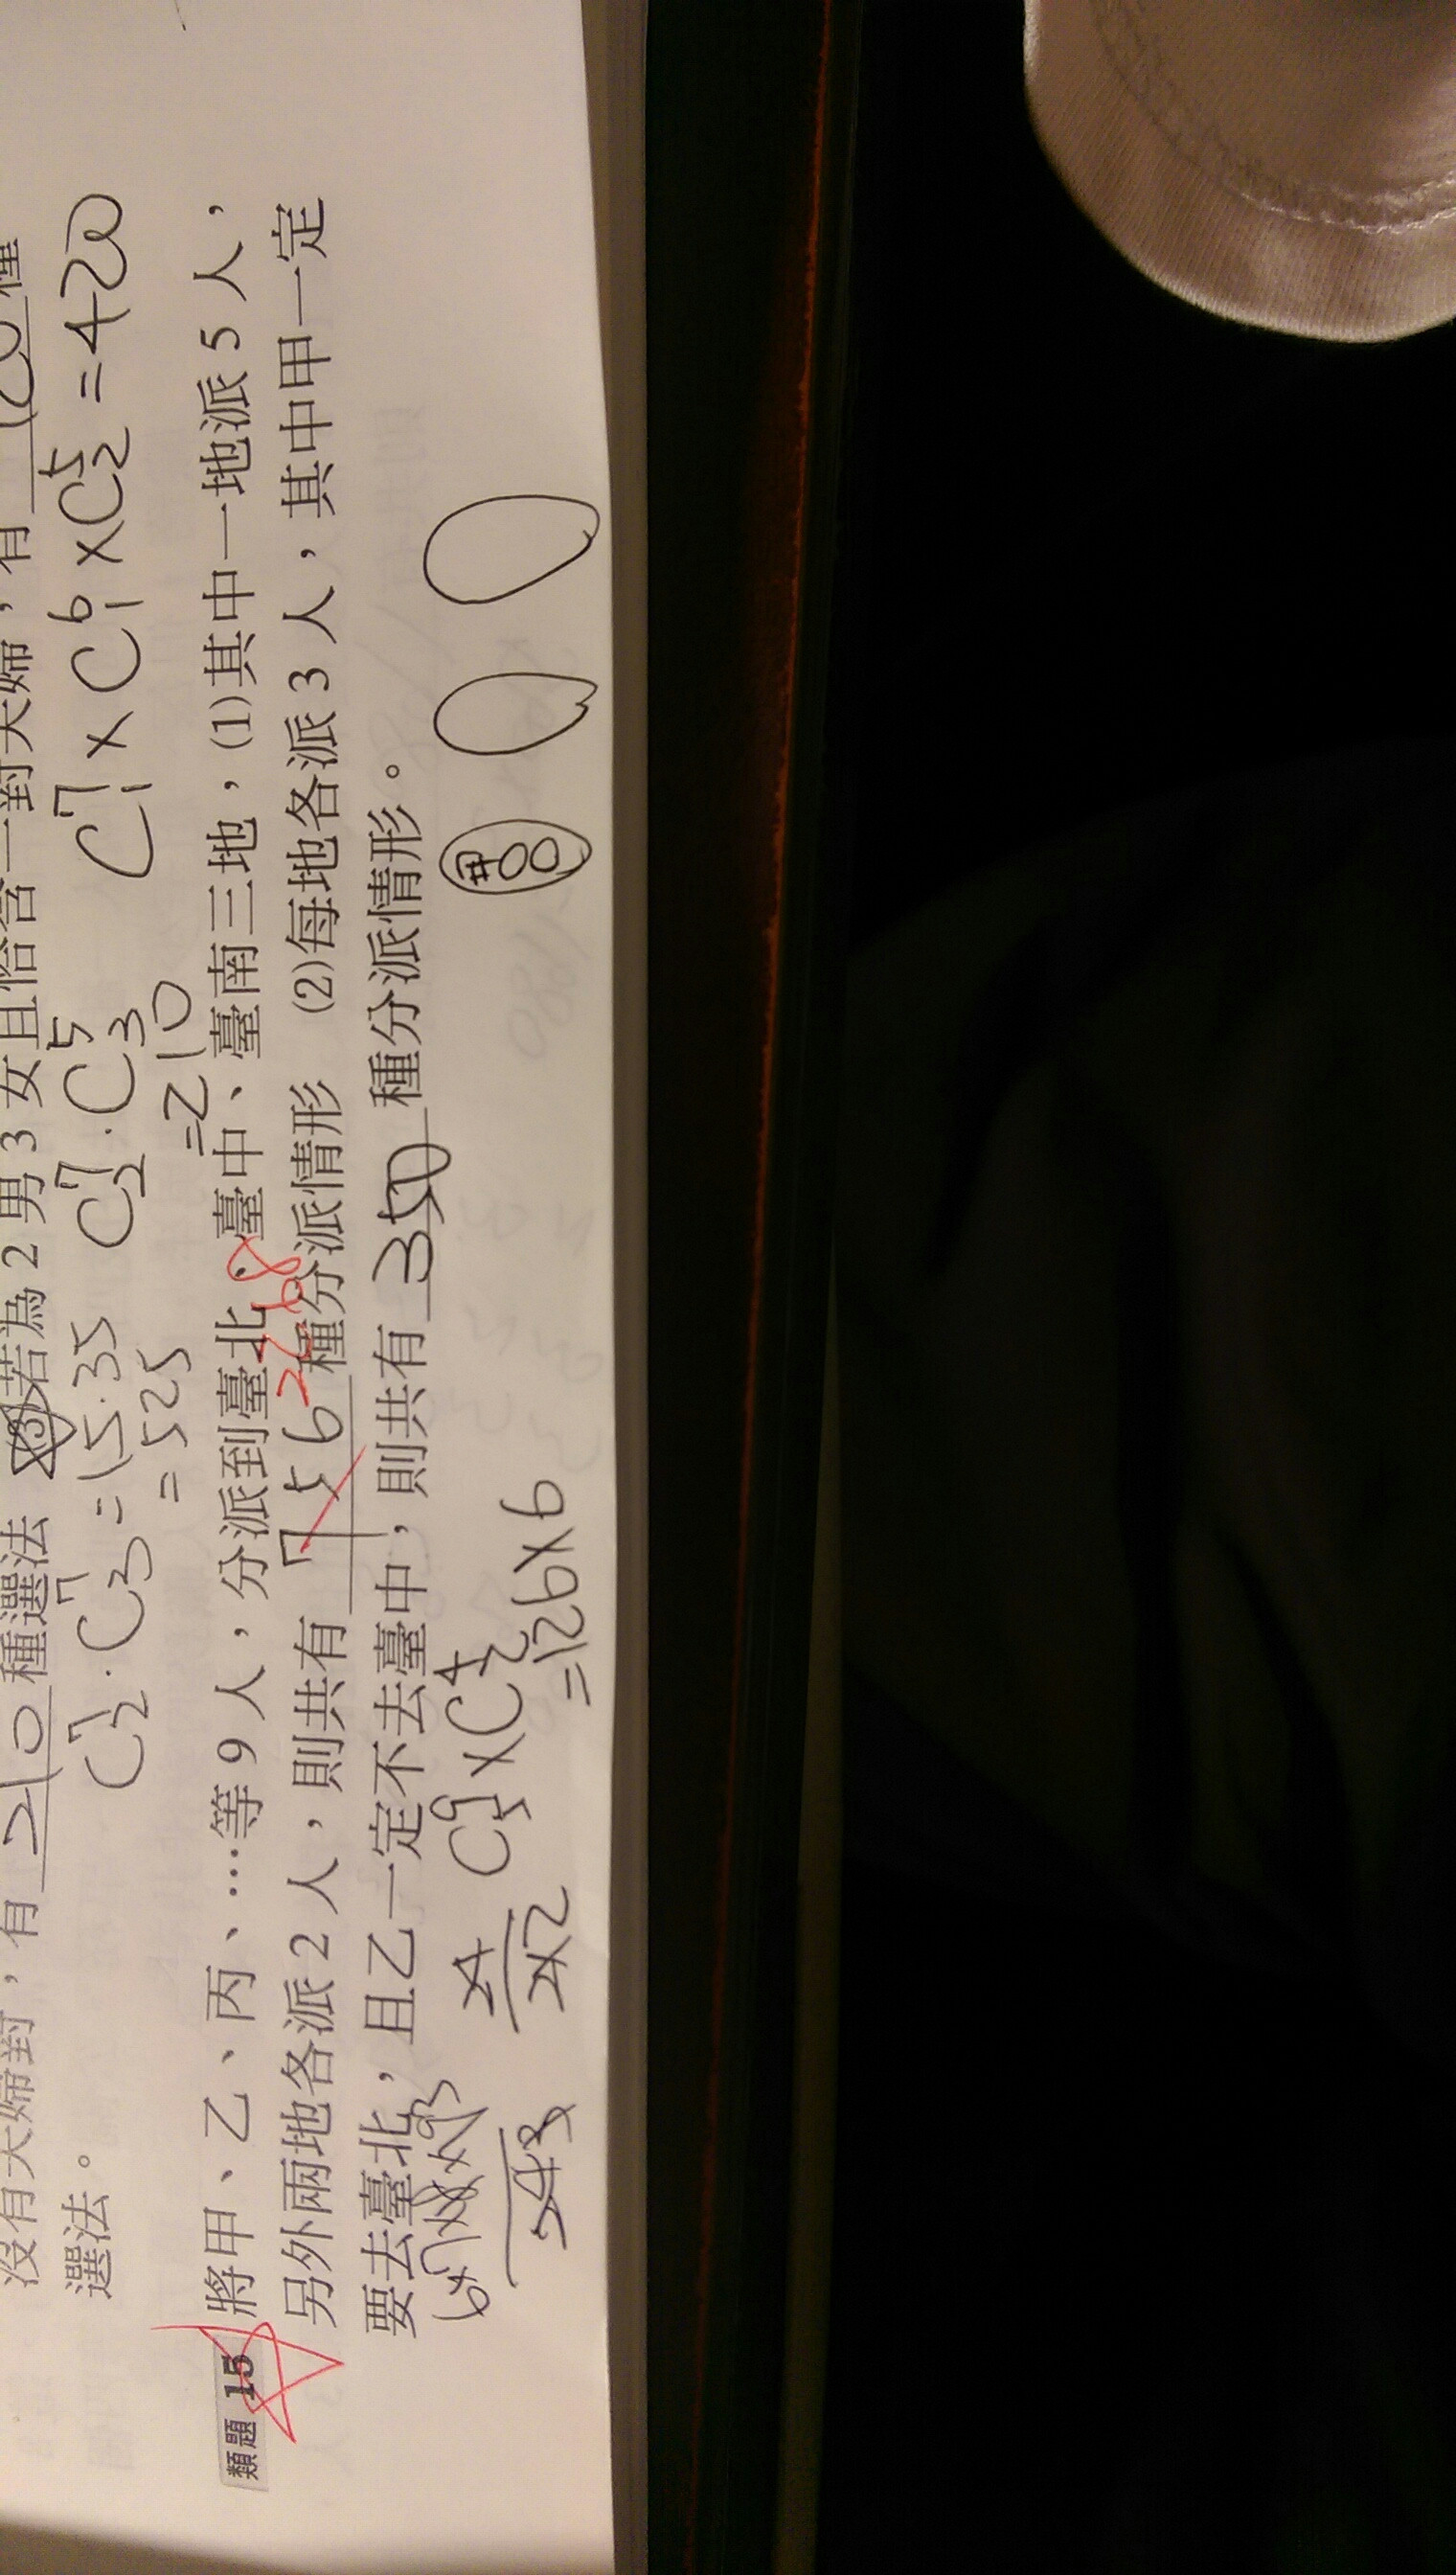 沒有夫婦對，有 210 種選法 (3)若為 2 男 3 女且恰含一對夫婦，有
選法。
C⁷₂·C⁷₃=15·35
=525
C⁷₂·C⁵₃
=210
C⁷₁×C⁶₁×C⁵₂=420
類題 15 將甲、乙、丙、…等 9 人，分派到臺北、臺中、臺南三地，(1)其中一地派 5 人，
另外兩地各派 2 人，則共有 756 2268 種分派情形 (2)每地各派 3 人，其中甲一定
要去臺北，且乙一定不去臺中，則共有 350 種分派情形。
C⁹₅×C⁴₂
=126×6
甲